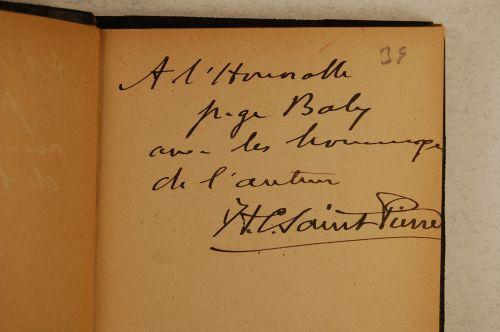 39
A l'Honorable
juge Baby
avec les hommages
de l'auteur
H.C. Saint Pierre